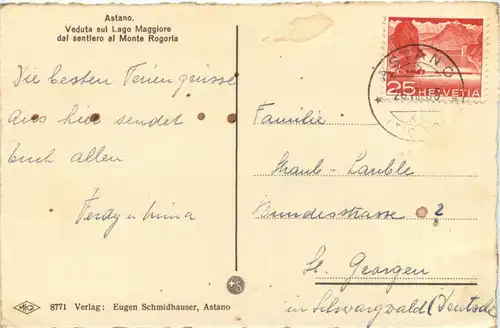 Astano.
Veduta sul Lago Maggiore
dal sentiero al Monte Rogoria
Die besten Feriengrüsse
aus hier sendet
Euch allen
Ferdy u.
Familie
Straub-
Bundesstrasse 2
St. Georgen
in Schwarzwald (Deutschl
25 HELVETIA
ASTANO
8771 Verlag: Eugen Schmidhauser, Astano